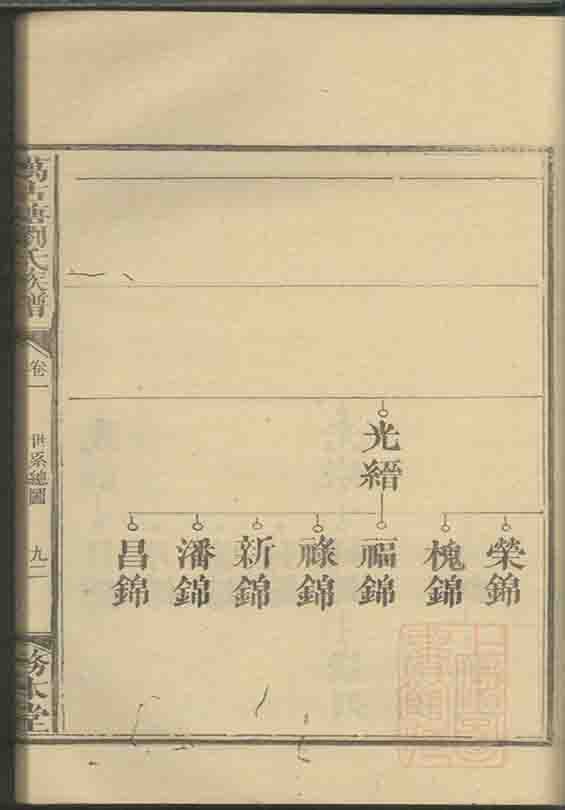 光縉
榮錦
槐錦
福錦
祿錦
新錦
潘錦
昌錦
萬古劉氏族譜
卷一
世系總圖
九二
務本堂